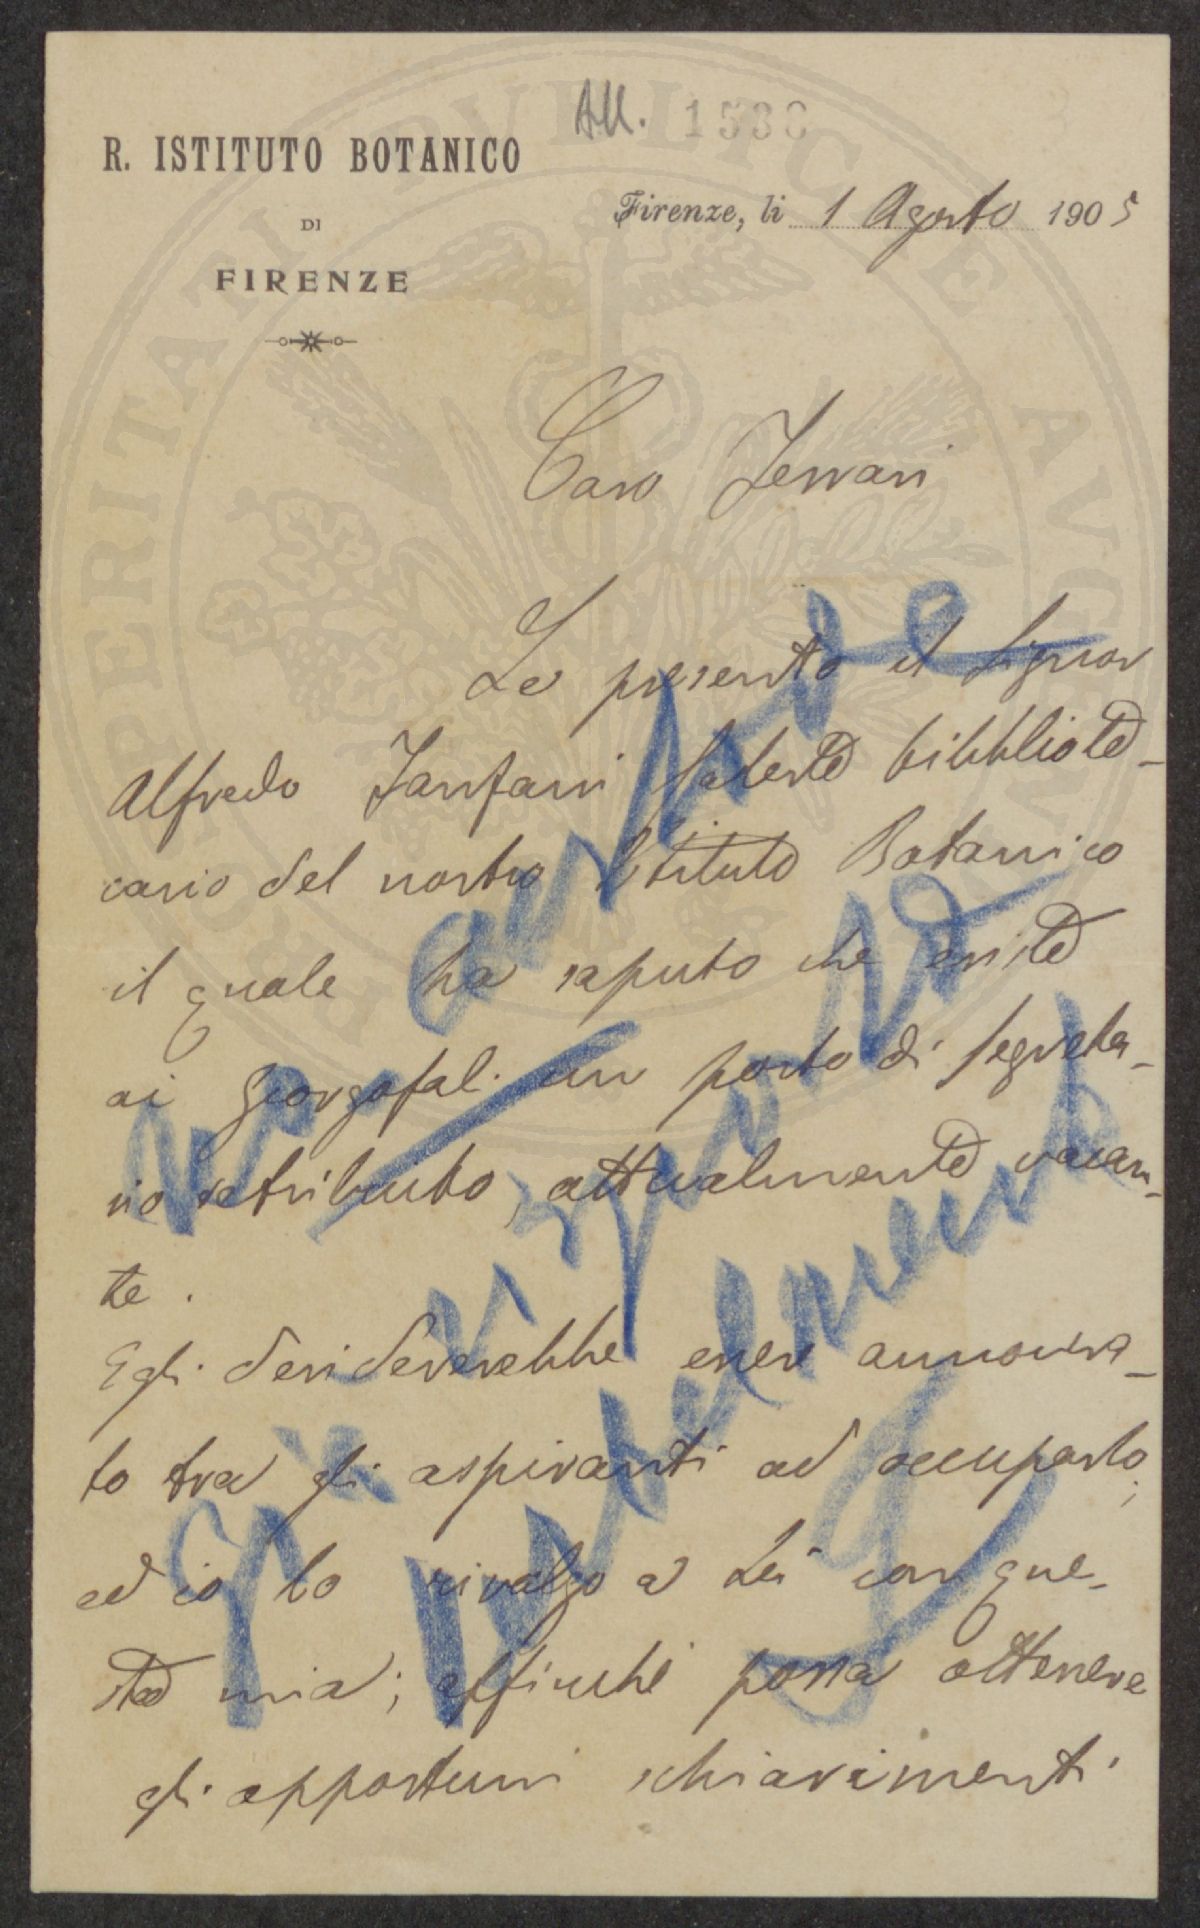 All. 1588
R. ISTITUTO BOTANICO
DI
FIRENZE
Firenze, li 1 Agosto 1905
Caro Ferrari
Le presento il Signor
Alfredo Fanfani solerte bibbliote-
cario del nostro Istituto Botanico
il quale ha saputo che esiste
ai Georgofali un posto di segreta-
rio retribuito, attualmente vacan-
te.
Egli desidererebbe essere annovera-
to tra gli aspiranti ad occuparlo;
ed io lo rivolgo a Lei con que-
sta mia; affinché possa ottenere
gli opportuni schiarimenti
PROSPERITATI PVBLICAE AVGENDAE